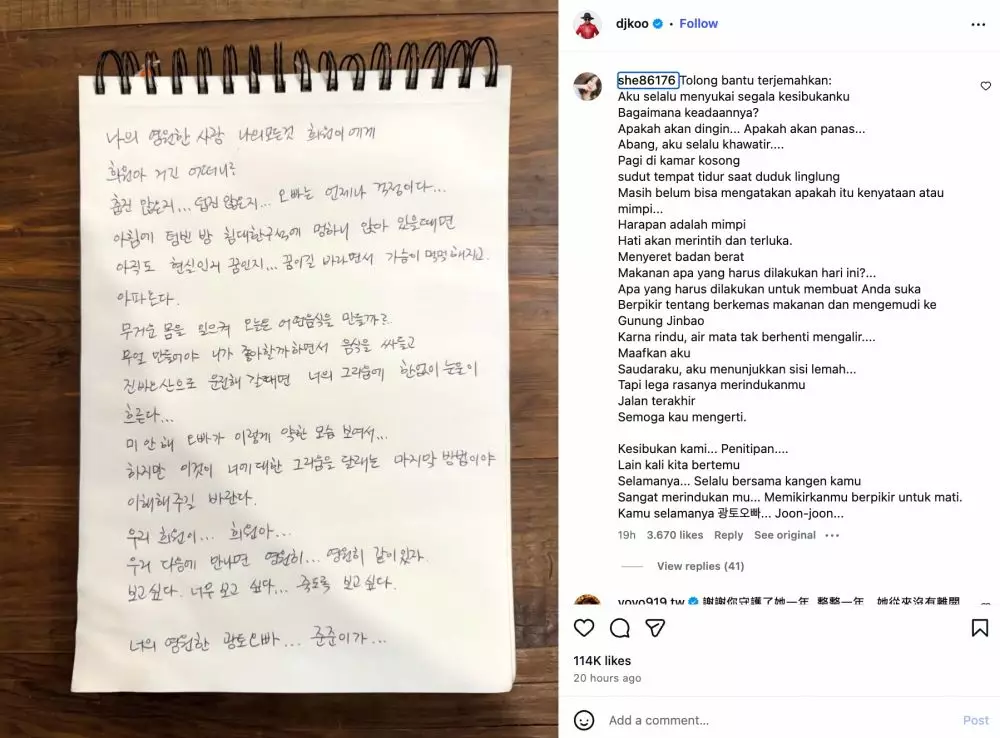 나의 영원한 사랑 나의모든것 희원이에게
희원아 거긴 어떠니?
춥진 않은지... 덥진 않은지... 오빠는 언제나 걱정이다...
아침에 텅빈 방 침대한구석에 멍하니 앉아 있을때면
아직도 현실인지 꿈인지... 꿈이길 바라면서 가슴이 먹먹해지고.
아파온다.
무거운 몸을 일으켜 오늘은 어떤음식을 만들까?
무얼 만들어야 니가 좋아할까하면서 음식을 싸들고
진바오산으로 운전해 갈때면 너의 그리움에 한없이 눈물이
흐른다...
미안해 오빠가 이렇게 약한 모습 보여서...
하지만 이것이 너에대한 그리움을 달래는 마지막 방법이야
이해해주길 바란다.
우리 희원이... 희원아...
우리 다음에 만나면 영원히... 영원히 같이있자.
보고싶다. 너무 보고 싶다... 죽도록 보고싶다.
너의 영원한 광토오빠... 준준이가...
djkoo • Follow
she86176 Tolong bantu terjemahkan:
Aku selalu menyukai segala kesibukanku
Bagaimana keadaannya?
Apakah akan dingin... Apakah akan panas...
Abang, aku selalu khawatir....
Pagi di kamar kosong
sudut tempat tidur saat duduk linglung
Masih belum bisa mengatakan apakah itu kenyataan atau
mimpi...
Harapan adalah mimpi
Hati akan merintih dan terluka.
Menyeret badan berat
Makanan apa yang harus dilakukan hari ini?...
Apa yang harus dilakukan untuk membuat Anda suka
Berpikir tentang berkemas makanan dan mengemudi ke
Gunung Jinbao
Karna rindu, air mata tak berhenti mengalir....
Maafkan aku
Saudaraku, aku menunjukkan sisi lemah...
Tapi lega rasanya merindukanmu
Jalan terakhir
Semoga kau mengerti.
Kesibukan kami... Penitipan....
Lain kali kita bertemu
Selamanya... Selalu bersama kangen kamu
Sangat merindukan mu... Memikirkanmu berpikir untuk mati.
Kamu selamanya 광토오빠... Joon-joon...
19h 3.670 likes Reply See original
View replies (41)
yoyo919.tw 謝謝你守護了她一年 整整一年 她從來沒有離開
114K likes
20 hours ago
Add a comment... Post